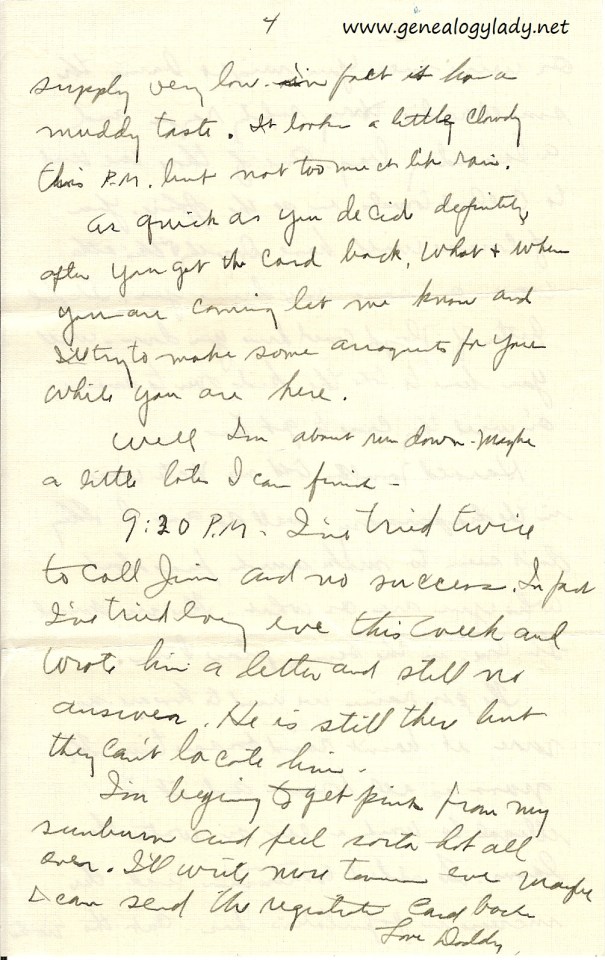 4
www.genealogylady.net
supply very low. In fact it has a
muddy taste. It looks a little cloudy
this P.M. but not too much like rain.
As quick as you decide definitely
after you get the card back, what + when
you are coming let me know and
I'll try to make some for you
while you are here.
Well I'm about run down. Maybe
a little later I can finish -
9:30 P.M. I've tried twice
to call Jim and no success. In fact
I've tried every eve this week and
wrote him a letter and still no
answer. He is still there but
they can't locate him.
I'm begining to get pink from my
sunburn and feel sorta hot all
over. I'll write more eve maybe
I can send the card back
Love Daddy.